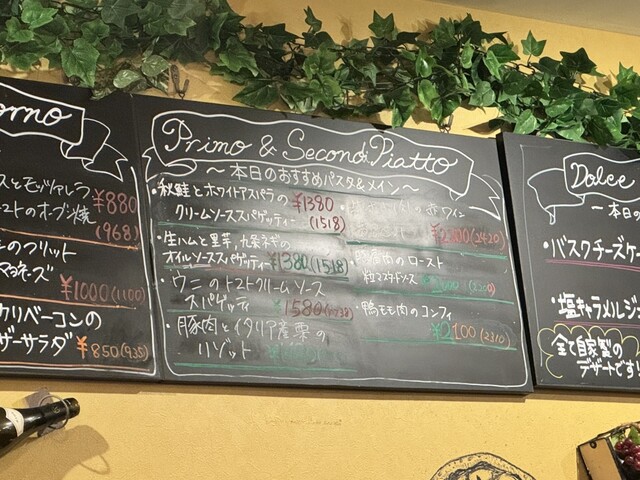 orno
スとモッツァレラ
ストのオーブン焼 ¥880
(968)
のフリット
マヨネーズ
¥1000(1100)
カリベーコンの
ザーサラダ ¥850(935)
Primo & Second Piatto
～本日のおすすめパスタ&メイン～
・秋鮭とホワイトアスパラの ¥1380
クリームソーススパゲッティー (1518)
・生ハムと里芋、九条ネギの
オイルソーススパゲッティー ¥1380(1518)
・ウニのトマトクリームソース
スパゲッティ ¥1580
・豚肉とイタリア産栗の
リゾット
赤ワイン
(2420)
肉のロースト
粒マスタードソース
・鴨モモ肉のコンフィ
¥2100(2310)
Dolce
～本日の
・バスクチーズケ
・塩キャラメルジ
全て自家製の
デザートです!